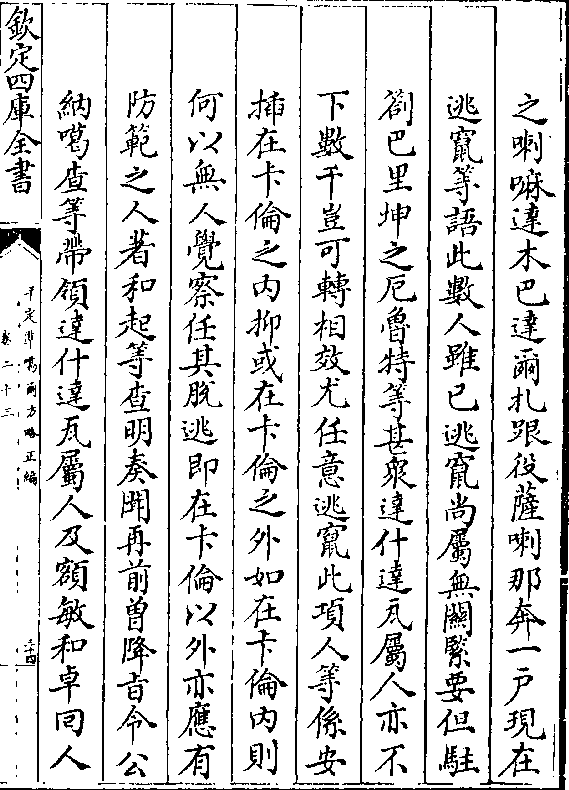 之喇嘛達木巴達爾扎跟役薩喇那奔一戶現在
逃竄等語此數人雖已逃竄尚屬無關緊要但駐
劄巴里坤之厄魯特等甚衆達什達瓦屬人亦不
下數千豈可轉相效尤任意逃竄此項人等係安
揷在卡倫之内抑或在卡倫之外如在卡倫内則
何以無人覺察任其脫逃即在卡倫以外亦應有
防範之人著和起等查明奏聞再前曽降㫖令公
納噶查等帶領達什達瓦屬人及額敏和卓回人
欽定四庫全書
平定準噶爾方略正編
卷二十三
三十四